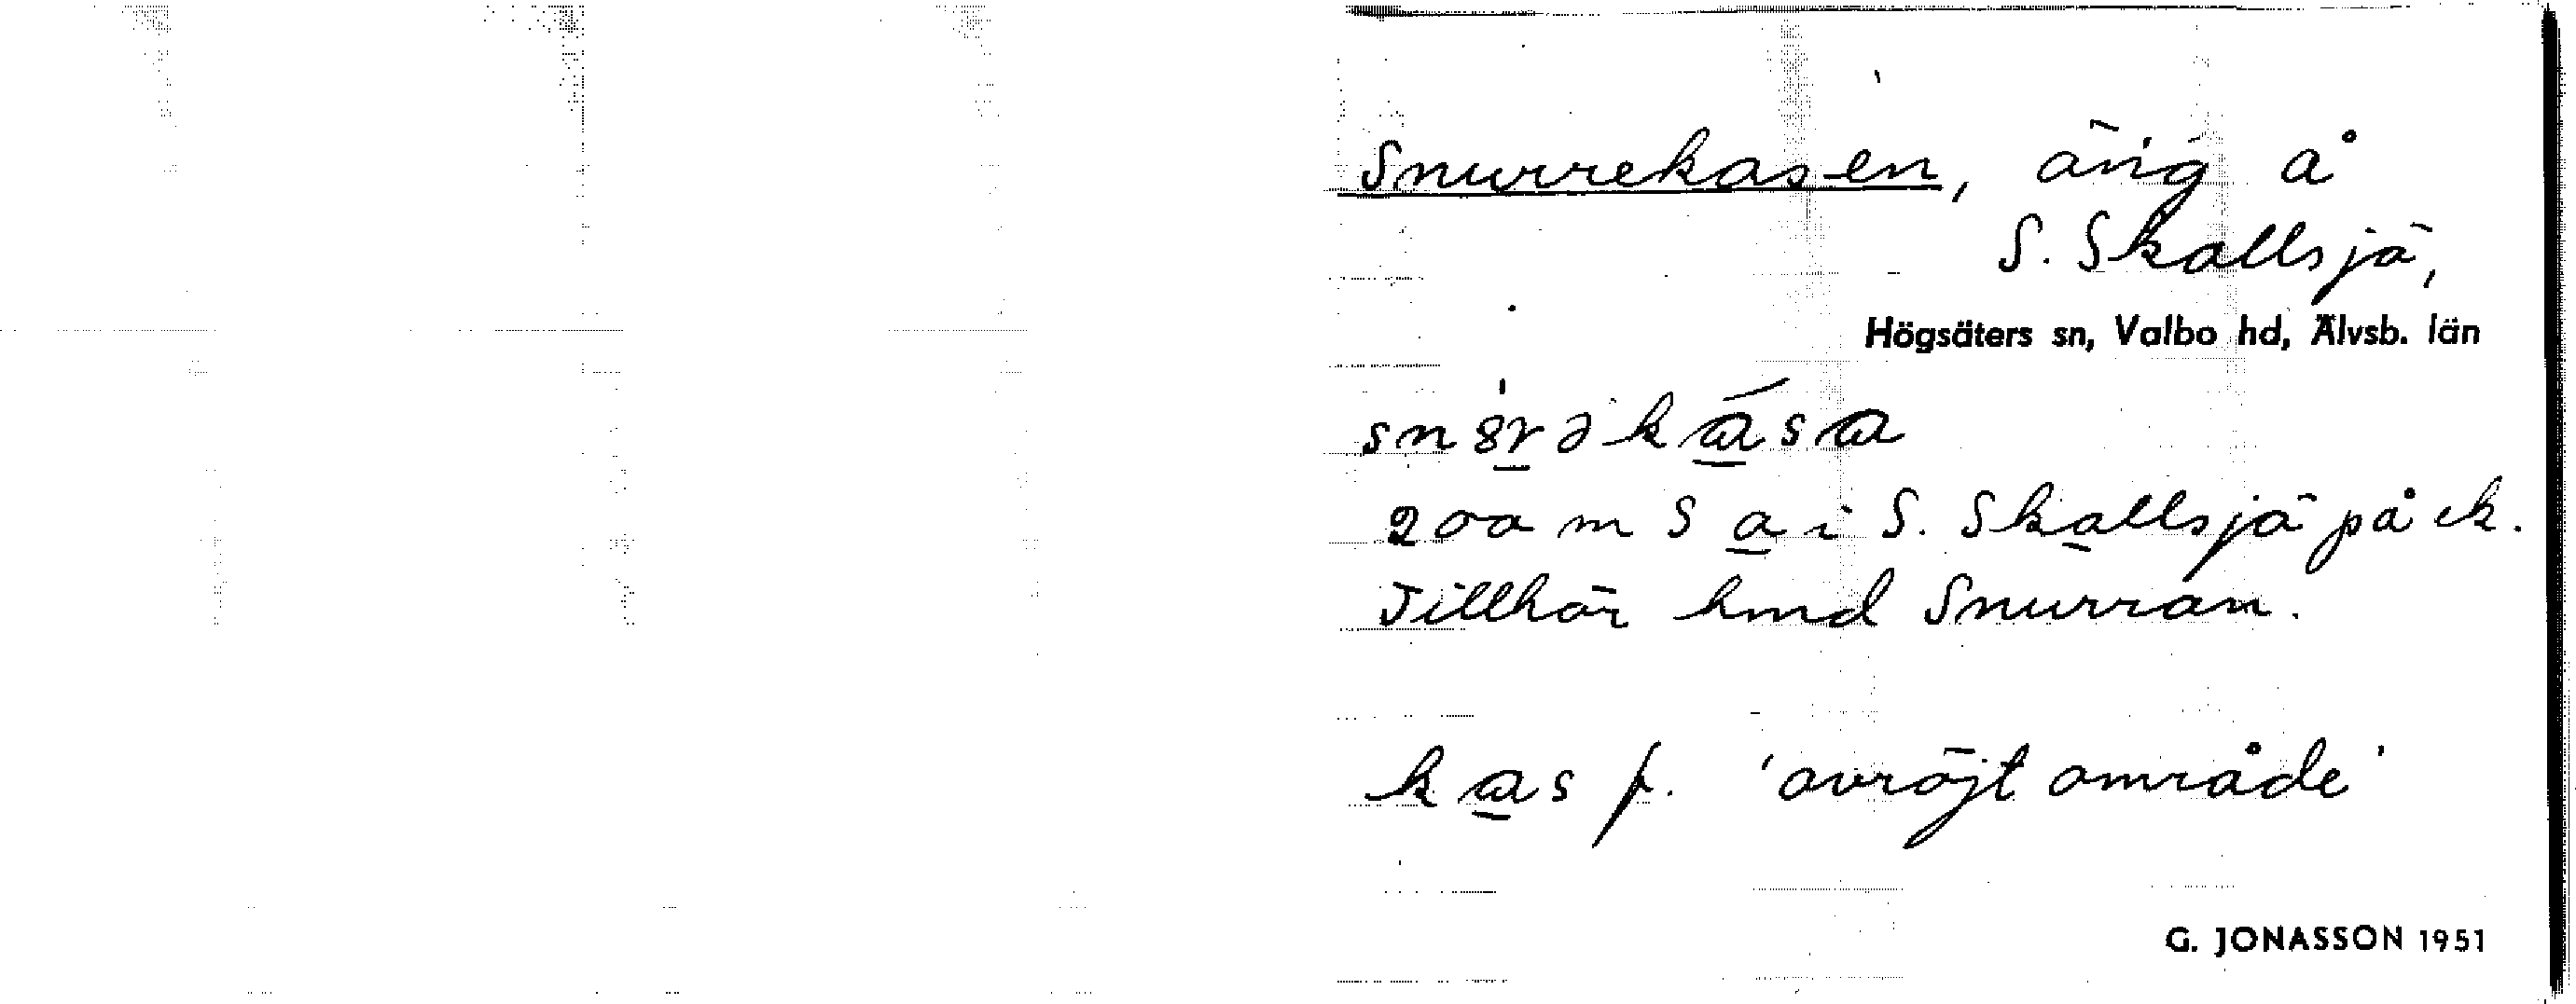 Snurrekasen, äng å
S. Skallsjö,
Högsäters sn, Valbo hd, Älvsb. län
200 m S a i S. Skallsjö på ek.
Tillhör hmd Snurran.
kas f. 'avröjt område'
G. JONASSON 1951